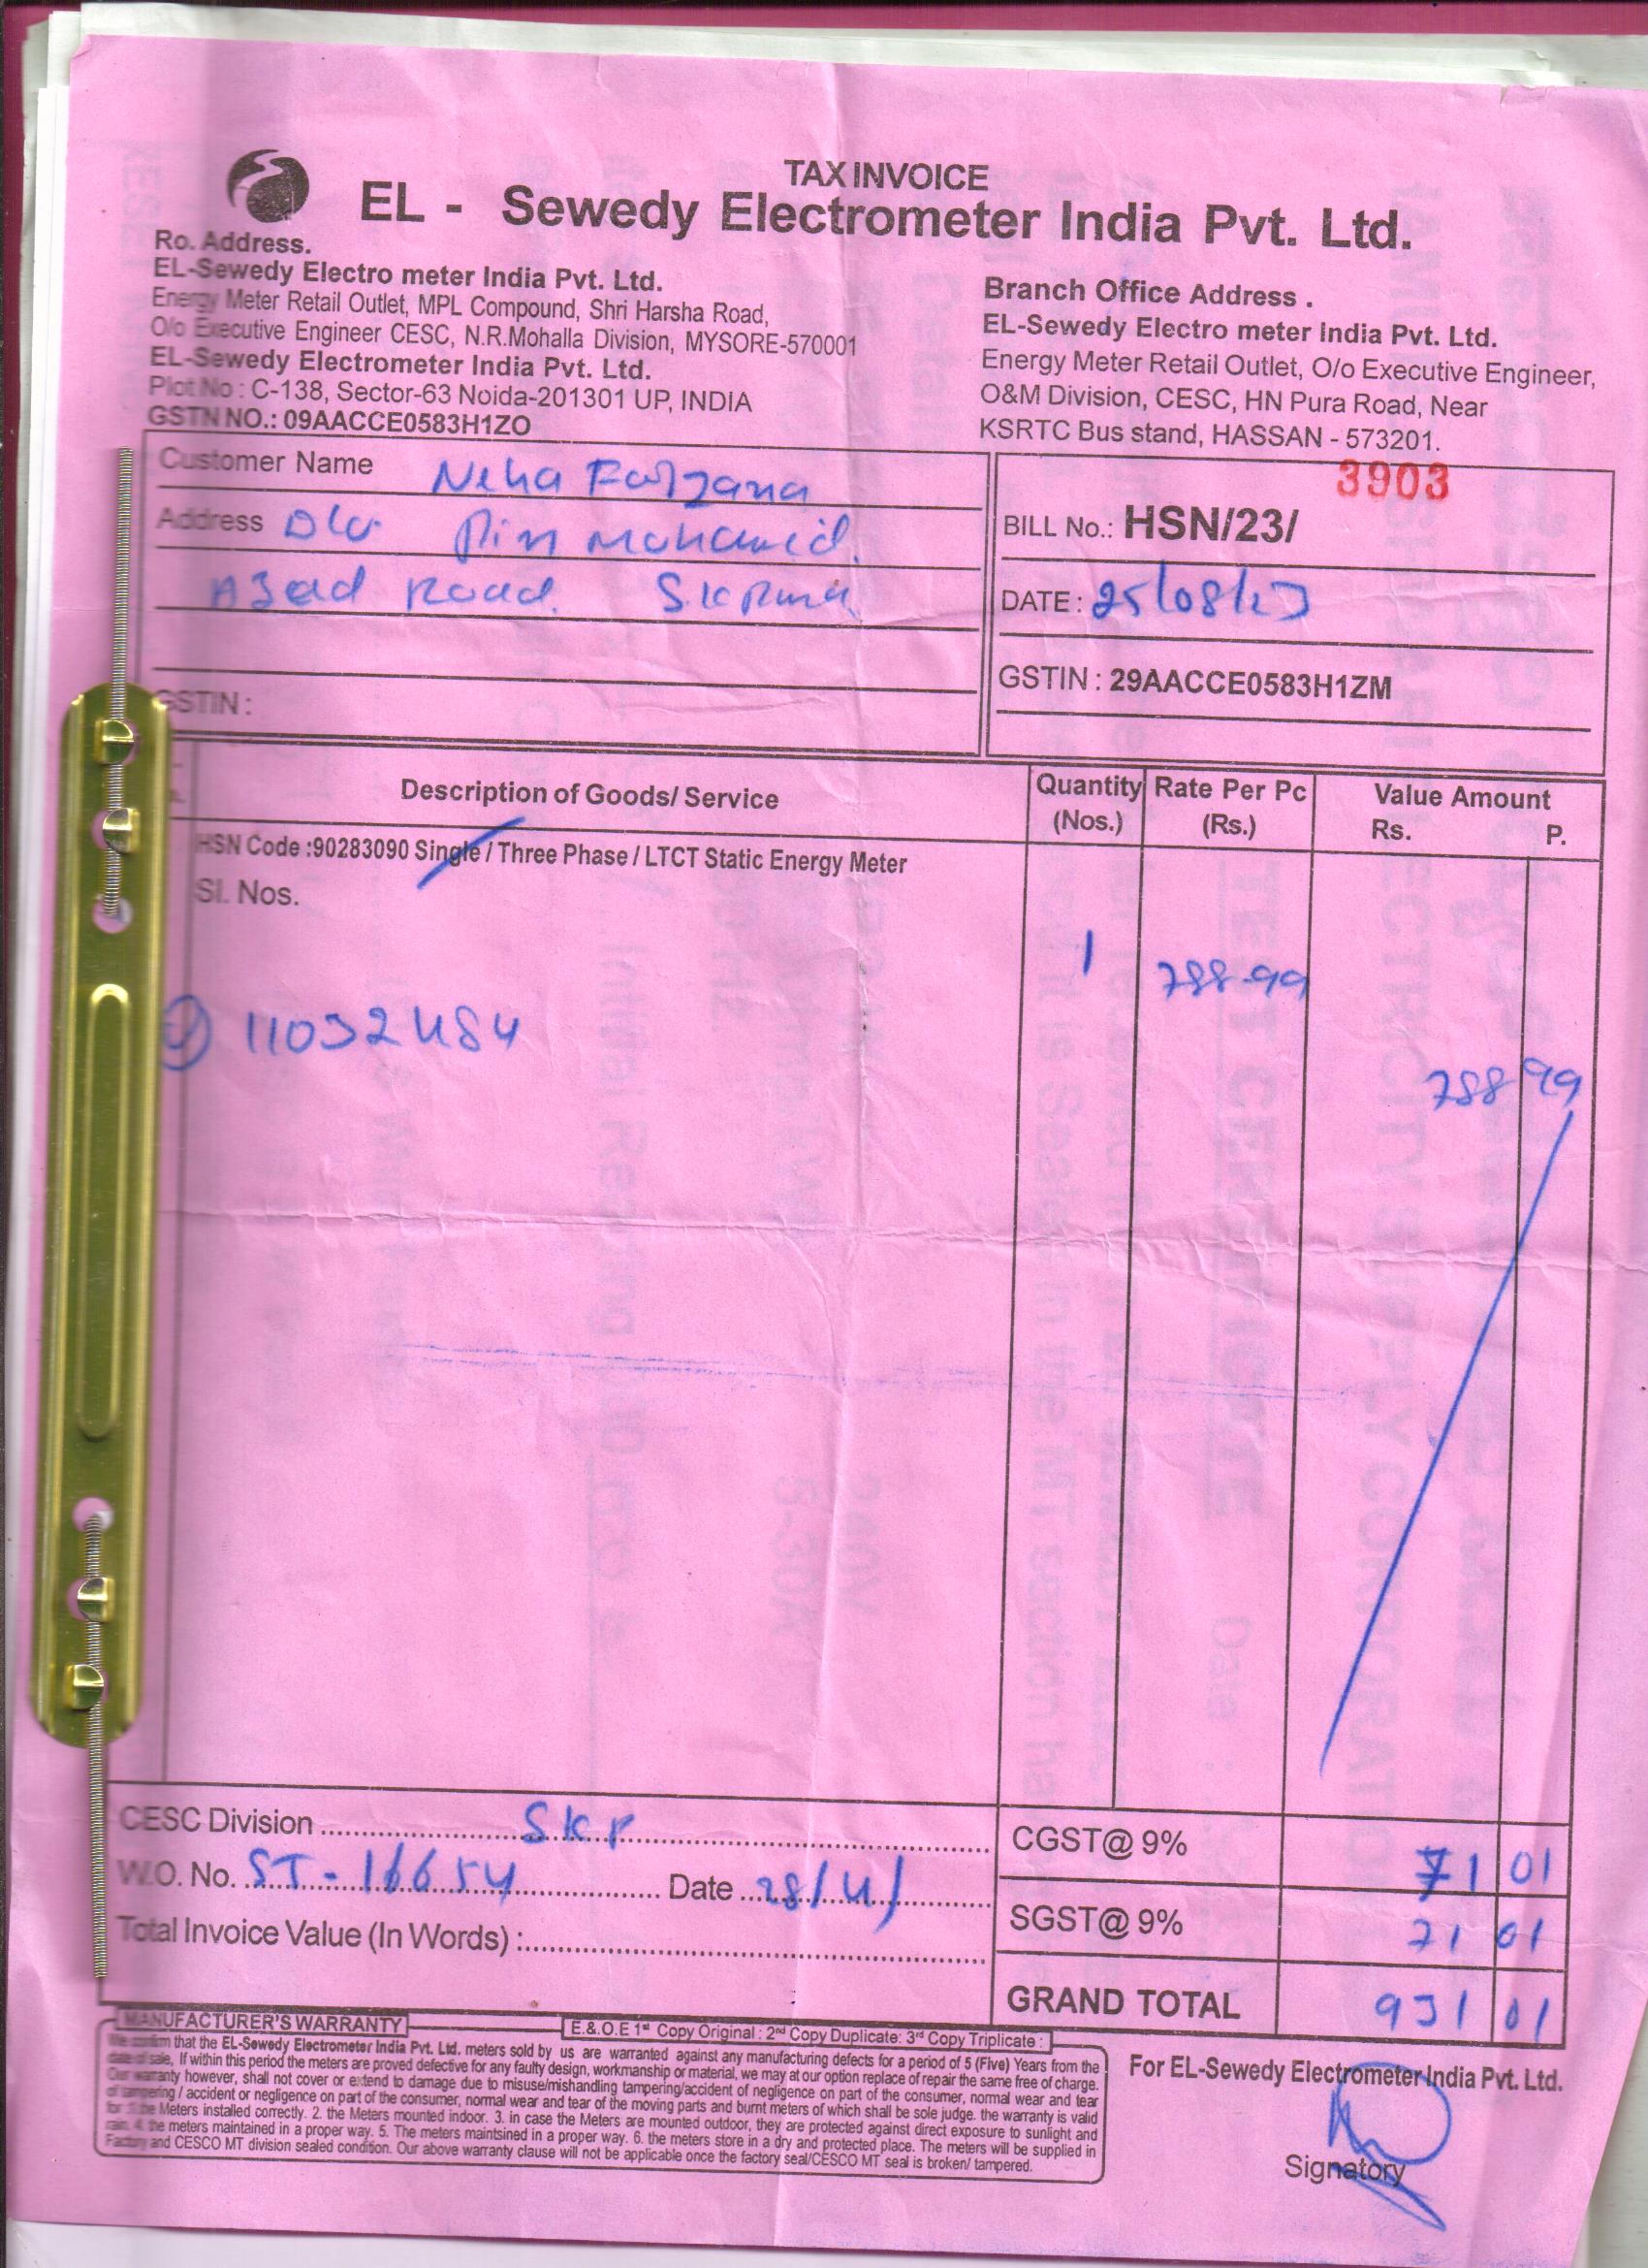 TAX INVOICE
EL - Sewedy Electrometer India Pvt. Ltd.
Ro. Address.
EL-Sewedy Electro meter India Pvt. Ltd.
Energy Meter Retail Outlet, MPL Compound, Shri Harsha Road,
O/o Executive Engineer CESC, N.R.Mohalla Division, MYSORE-570001
EL-Sewedy Electrometer India Pvt. Ltd.
Plot No : C-138, Sector-63 Noida-201301 UP, INDIA
GSTN NO.: 09AACCE0583H1ZO
Branch Office Address .
EL-Sewedy Electro meter India Pvt. Ltd.
Energy Meter Retail Outlet, O/o Executive Engineer,
O&M Division, CESC, HN Pura Road, Near
KSRTC Bus stand, HASSAN - 573201.
Customer Name Neha Farzana
Address D/o.
Azad Road
GSTIN :
3903
BILL No.: HSN/23/
DATE : 25/08/23
GSTIN : 29AACCE0583H1ZM
Description of Goods/ Service Quantity (Nos.) Rate Per Pc (Rs.) Value Amount Rs. P.
HSN Code :90283090 Single / Three Phase / LTCT Static Energy Meter
Sl. Nos.
1 788-99
11032484
788 99
CESC Division SKP
W.O. No. ST-16654 Date 28/4/
Total Invoice Value (In Words) :
CGST@ 9% 71 01
SGST@ 9% 71 01
GRAND TOTAL 931 01
MANUFACTURER'S WARRANTY
E.&.O.E 1st Copy Original : 2nd Copy Duplicate: 3rd Copy Triplicate :
We confirm that the EL-Sewedy Electrometer India Pvt. Ltd. meters sold by us are warranted against any manufacturing defects for a period of 5 (Five) Years from the
date of sale, If within this period the meters are proved defective for any faulty design, workmanship or material, we may at our option replace of repair the same free of charge.
Our warranty however, shall not cover or extend to damage due to misuse/mishandling tampering/accident of negligence on part of the consumer, normal wear and tear
of tampering / accident or negligence on part of the consumer, normal wear and tear of the moving parts and burnt meters of which shall be sole judge. the warranty is valid
for : 1. the Meters installed correctly. 2. the Meters mounted indoor. 3. in case the Meters are mounted outdoor, they are protected against direct exposure to sunlight and
rain. 4. the meters maintained in a proper way. 5. The meters maintsined in a proper way. 6. the meters store in a dry and protected place. The meters will be supplied in
Factory and CESCO MT division sealed condition. Our above warranty clause will not be applicable once the factory seal/CESCO MT seal is broken/ tampered.
For EL-Sewedy Electrometer India Pvt. Ltd.
Signatory